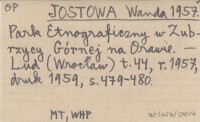 OP
JOSTOWA Wanda 1957.
Park Etnograficzny w Zub-
rzycy Górnej na Orawie. —
Lud (Wrocław) t. 44, r. 1957,
druk 1959, s. 479-480.
MT, WHP